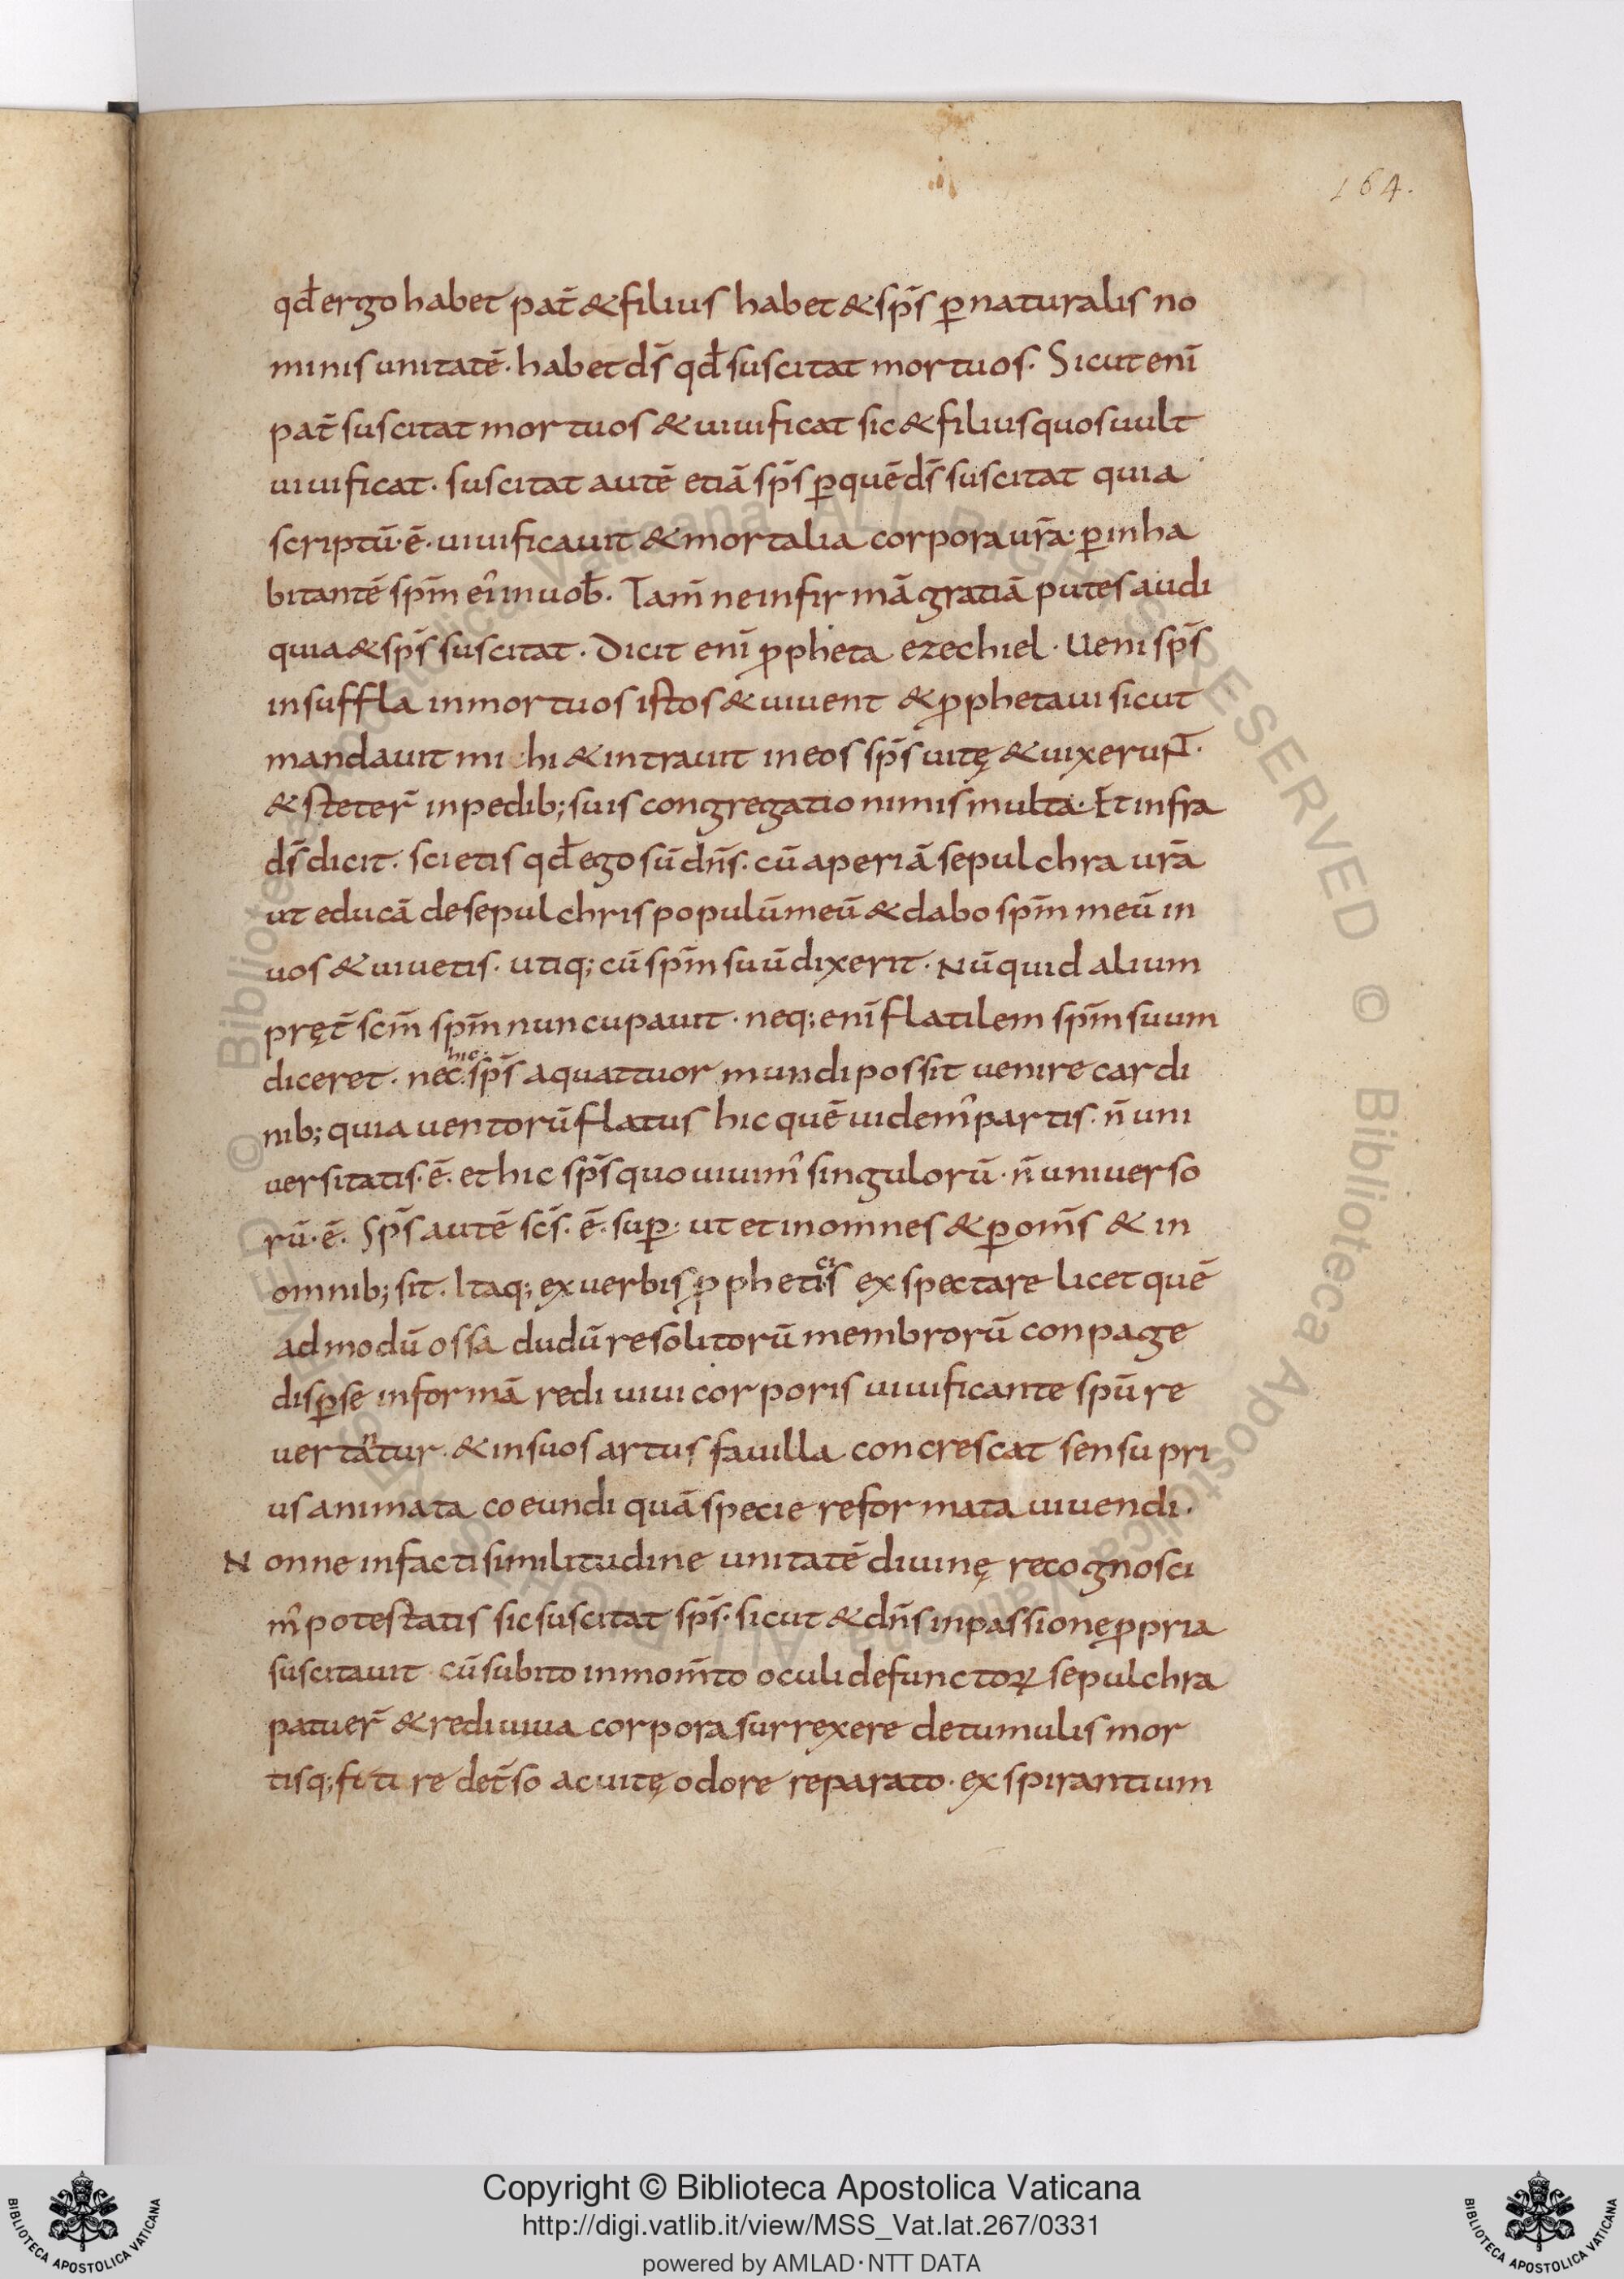 164.
qđ ergo habet pat̄ & filius habet & sp̄s ꝑ naturalis no
minis unitatē· habet ds̄ qđ suscitat mortuos· Sicut enī
pat̄ suscitat mortuos & uiuificat sic & filius quos uult
uiuificat· suscitat autē etiā sp̄s ꝑ quē ds̄ suscitat quia
scriptū·ē· uiuificauit & mortalia corpora ur̄a· ꝑ inha
bitantē sp̄m ei᾽ in uob̄· Tam̄ ne infirmā gratiā putes audi
quia & sp̄s suscitat· Dicit enī ꝓpheta ezechiel· Ueni sp̄s
insuffla in mortuos istos & uiuent & ꝓphetaui sicut
mandauit mi hi & intrauit in eos sp̄s uitę & uixeruNT·
& steter̄ in pedib; suis congregatio nimis multa· Et infra
ds̄ dicit· scietis qđ ego sū dn̄s· cū aperiā sepulchra ur̄a
ut educā de sepulchris populū meū & dabo sp̄m meū in
uos & uiuetis· utiq; cū sp̄m suū dixerit· Nū quid alium
pręt̄ scm̄ sp̄m nuncupauit· neq; enī flatilem sp̄m suum
diceret· nec hic sp̄s a quattuor mundi possit uenire cardi
nib; quia uentorū flatus hic quē uidem᾽ partis· n̄ uni
uersitatis·ē· et hic sp̄s quo uiuim᾽ singulorū· n̄ uniuerso
rū·ē· Sp̄s autē scs̄·ē· suꝑ· ut et in omnes & ꝑ om̄s & in
omnib; sit· Itaq; ex uerbis ꝓpheticis exspectare licet quē
ad modū ossa dudū resolitorū membrorū conpage
disꝑse in formā rediuiui corporis uiuificante spū re
uertantur· & in suos artus fauilla concrescat sensu pri
us animata coeundi quā specie reformata uiuendi·
Nonne in facti similitudine unitatē diuinę recognosci
m᾽ potestatis sic suscitat sp̄s· sicut & dn̄s in passione ꝓpria
suscitauit· cū subito in mom̄to oculi defunctoꝝ sepulchra
patuer̄ & rediuiua corpora surrexere de tumulis mor
tisq; fi ti re det̄so ac uitę odore reparato· exspirantium
Copyright © Biblioteca Apostolica Vaticana
http://digi.vatlib.it/view/MSS_Vat.lat.267/0331
powered by AMLAD·NTT DATA
BIBLIOTECA APOSTOLICA VATICANA
BIBLIOTECA APOSTOLICA VATICANA